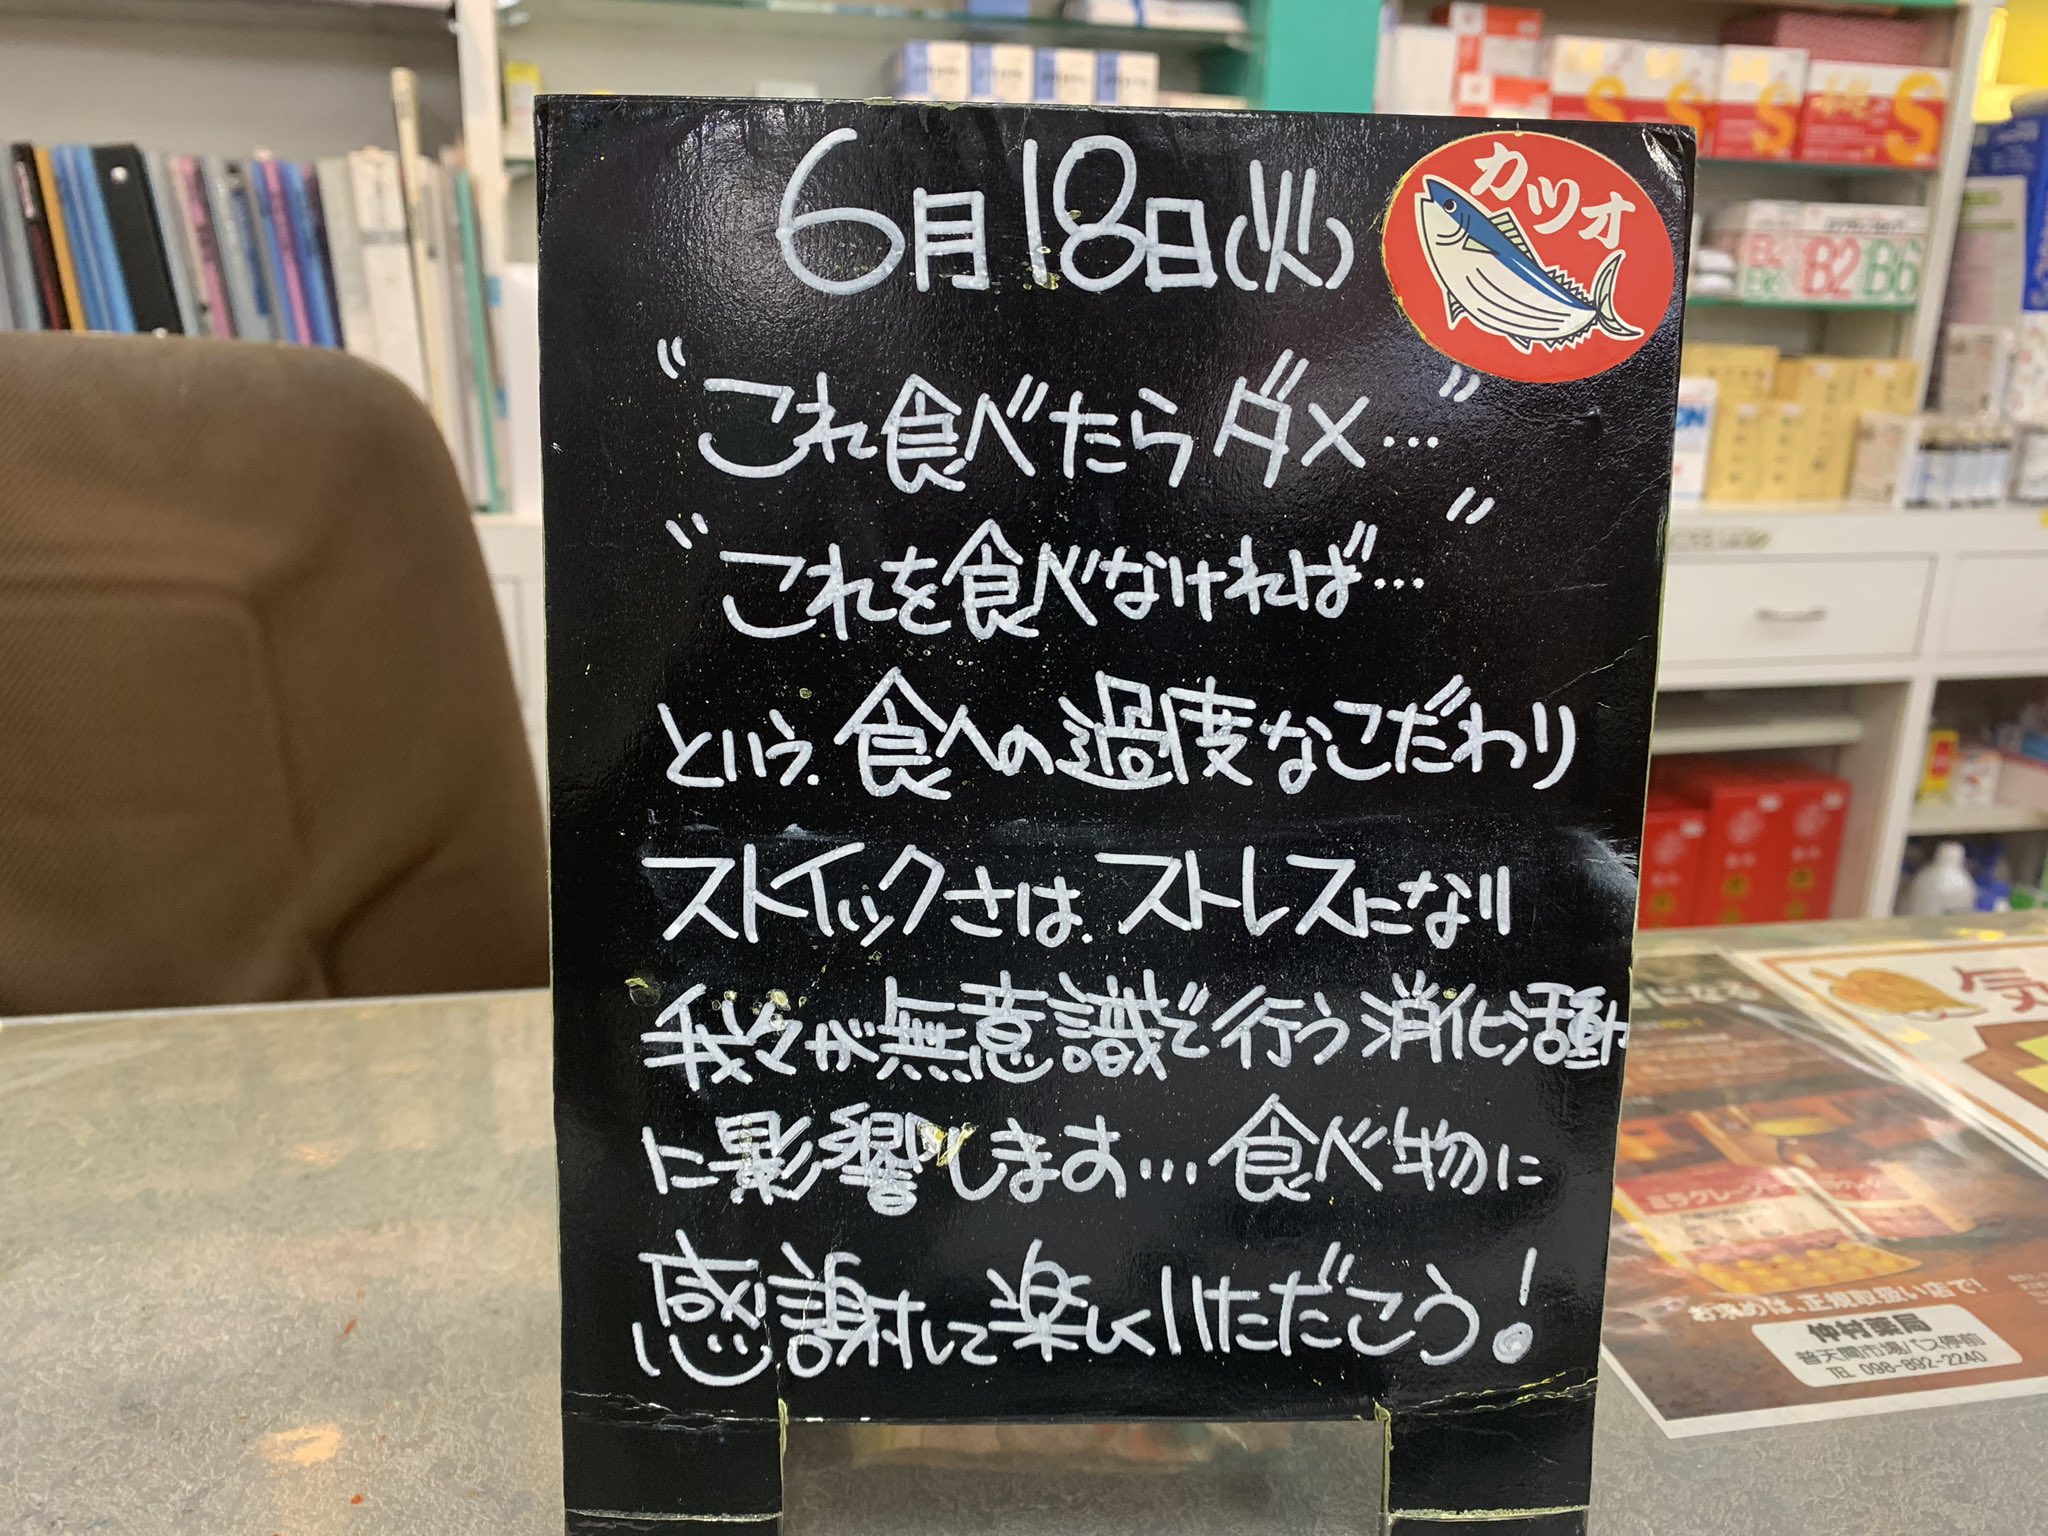 6月18日(火)
カツオ
"これ食べたらダメ…"
"これを食べなければ…"
という、食への過度なこだわり
ストイックさは、ストレスになり
我々が無意識で行う消化活動
に影響します…食べ物に
感謝して楽しくいただこう!
S
S
S
B2 B6
気
になる
ミラグレーン
お求めは、正規取扱い店で!
仲村薬局
普天間市場バス停前
TEL 098-892-2240